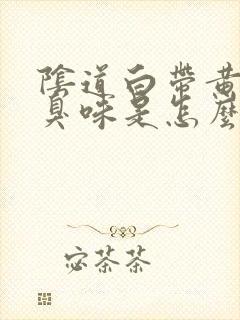 陰道白帶黃
臭味是怎麼
宓茶茶